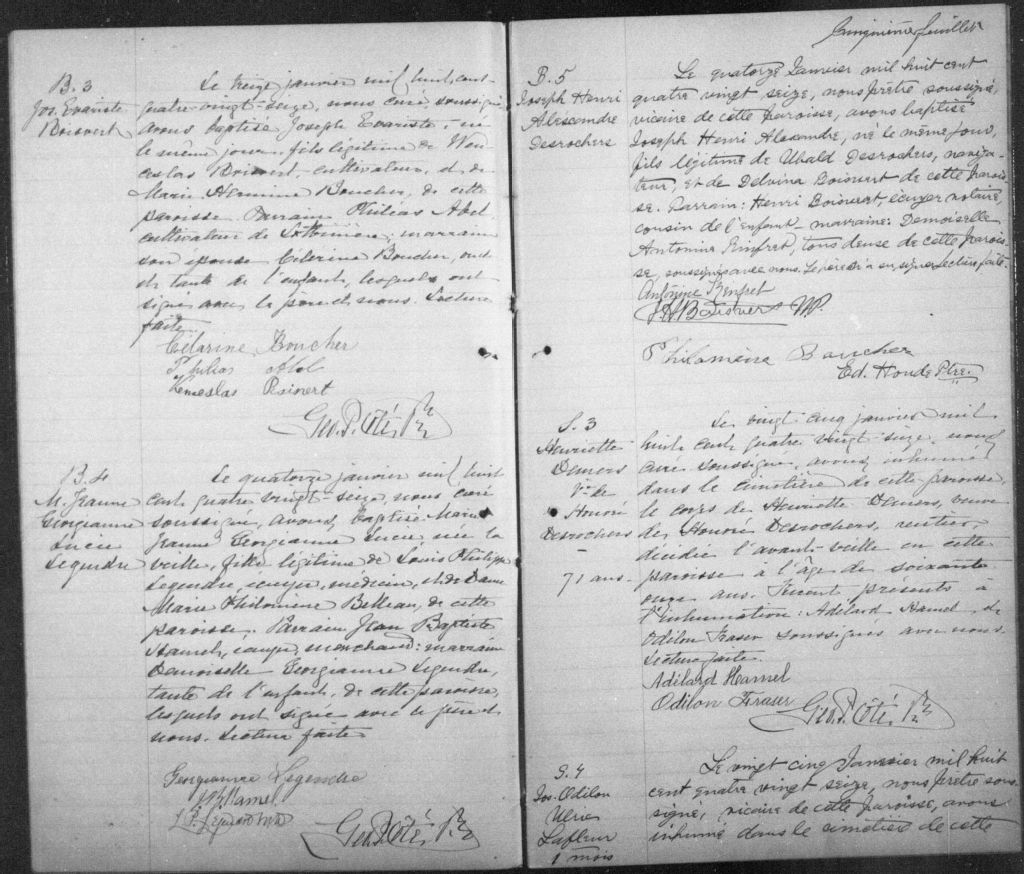 B. 3
Jos. Evariste
Boisvert
Le treize janvier mil huit cent
quatre-vingt-seize, nous curé, soussigné,
avons baptisé Joseph Evariste, né
le même jour, fils légitime de Wen
ceslas Boisvert, cultivateur, et de
Marie Herminie Boucher, de cette
paroisse. Parrain Philéas Abel
cultivateur de marraine
son épouse Célérine Boucher, oncle
et tante de l'enfant, lesquels ont
signé avec le père et nous. Lecture
faite.
Célarine Boucher
Philias Abel
Venceslas Boisvert
Geo. P. Côté Ptre
B. 4
M. Jeanne
Georgianne
Lucie
Legendre
Le quatorze janvier mil huit
cent quatre vingt-seize, nous curé
soussigné, avons baptisé Marie
Jeanne Georgianne Lucie née la
veille, fille légitime de Louis Philippe
Legendre, écuyer, médecin, et de Dame
Marie Philomène Belleau, de cette
paroisse. Parrain Jean Baptiste
Hamel, écuyer, marchand; marraine
Demoiselle Georgianne Legendre,
tante de l'enfant, de cette paroisse,
lesquels ont signé avec le père et
nous. Lecture faite.
Georgianna Legendre
Hamel
L. P. Legendre M.D.
Geo. P. Côté Ptre
Cinquième feuillet
B. 5
Joseph Henri
Alexandre
Desrochers
Le quatorze Janvier mil huit cent
quatre vingt seize, nous prêtre soussigné,
vicaire de cette paroisse, avons baptisé
Joseph Henri Alexandre, né le même jour,
fils légitime de Ubald Desrochers, naviga-
teur, et de Delvina Boisvert de cette parois-
se. Parrain: Henri Boisvert, écuyer notaire,
cousin de l'enfant marraine: Demoiselle
Antonine Rinfret, tous deux de cette parois-
se, soussignés avec nous. Le père a su signer. Lecture faite.
Antonine Renfret
J. H. Boisvert N.P.
Philomèna Boucher
Ed. Houde Ptre.
S. 3
Henriette
Demers
Vve de
Honoré
Desrochers
71 ans.
Le vingt cinq janvier mil
huit cent quatre vingt-seize, nous
curé soussigné, avons inhumé
dans le cimetière de cette paroisse,
le corps de Henriette Demers, veuve
de Honoré Desrochers, rentier,
décédée l'avant-veille en cette
paroisse à l'âge de soixante
onze ans. Furent présents à
l'inhumation: Adélard Hamel, et
Odilon Fraser soussignés avec nous.
Lecture faite.
Adélard Hamel
Odilon Fraser
Geo. P. Côté Ptre
S. 4
Jos. Odilon
Ulric
Lafleur
1 mois
Le vingt cinq Janvier mil huit
cent quatre vingt seize, nous prêtre sous-
signé, vicaire de cette paroisse, avons
inhumé dans le cimetière de cette